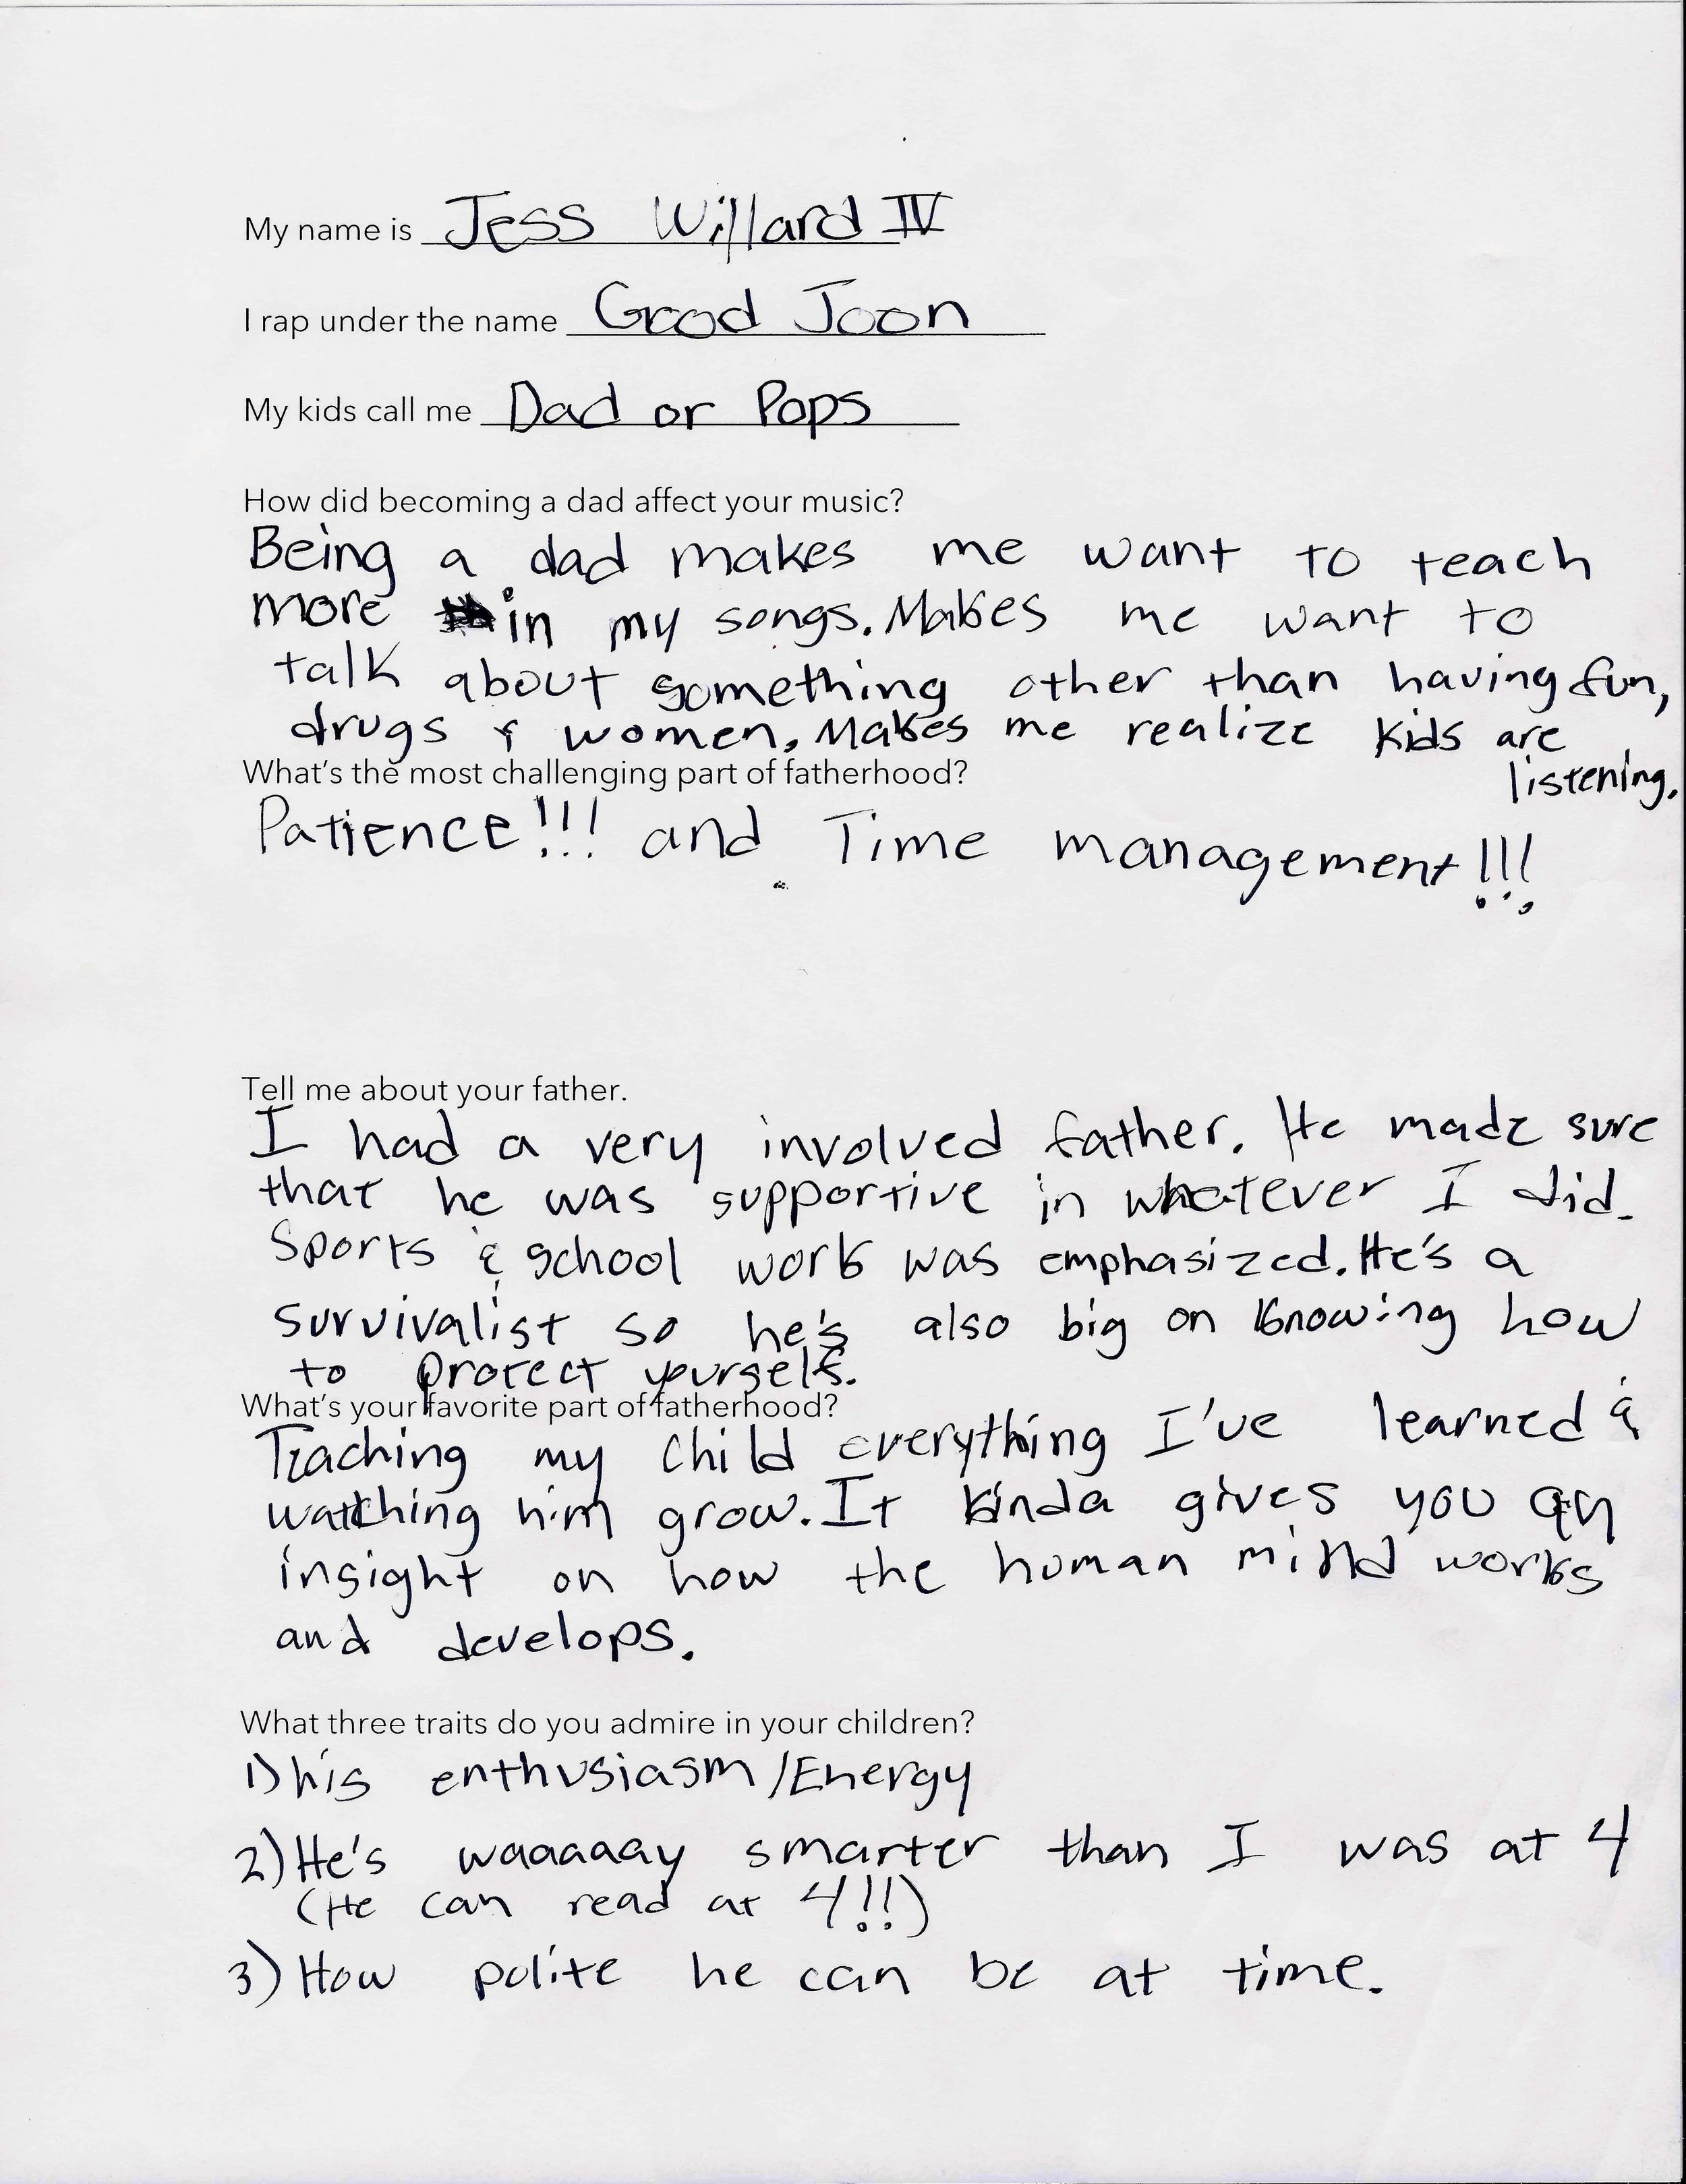 My name is Jess Willard IV
I rap under the name Good Joon
My kids call me Dad or Pops
How did becoming a dad affect your music?
Being a dad makes me want to teach
more in my songs. Makes me want to
talk about something other than having fun,
drugs & women. Makes me realize kids are
listening.
What's the most challenging part of fatherhood?
Patience!!! and Time management!!!
Tell me about your father.
I had a very involved father. He made sure
that he was supportive in whatever I did.
Sports & school work was emphasized. He's a
survivalist so he's also big on knowing how
to protect yourself.
What's your favorite part of fatherhood?
Teaching my child everything I've learned &
watching him grow. It kinda gives you an
insight on how the human mind works
and develops.
What three traits do you admire in your children?
1) his enthusiasm/Energy
2) He's waaaaay smarter than I was at 4
(He can read at 4!!)
3) How polite he can be at time.